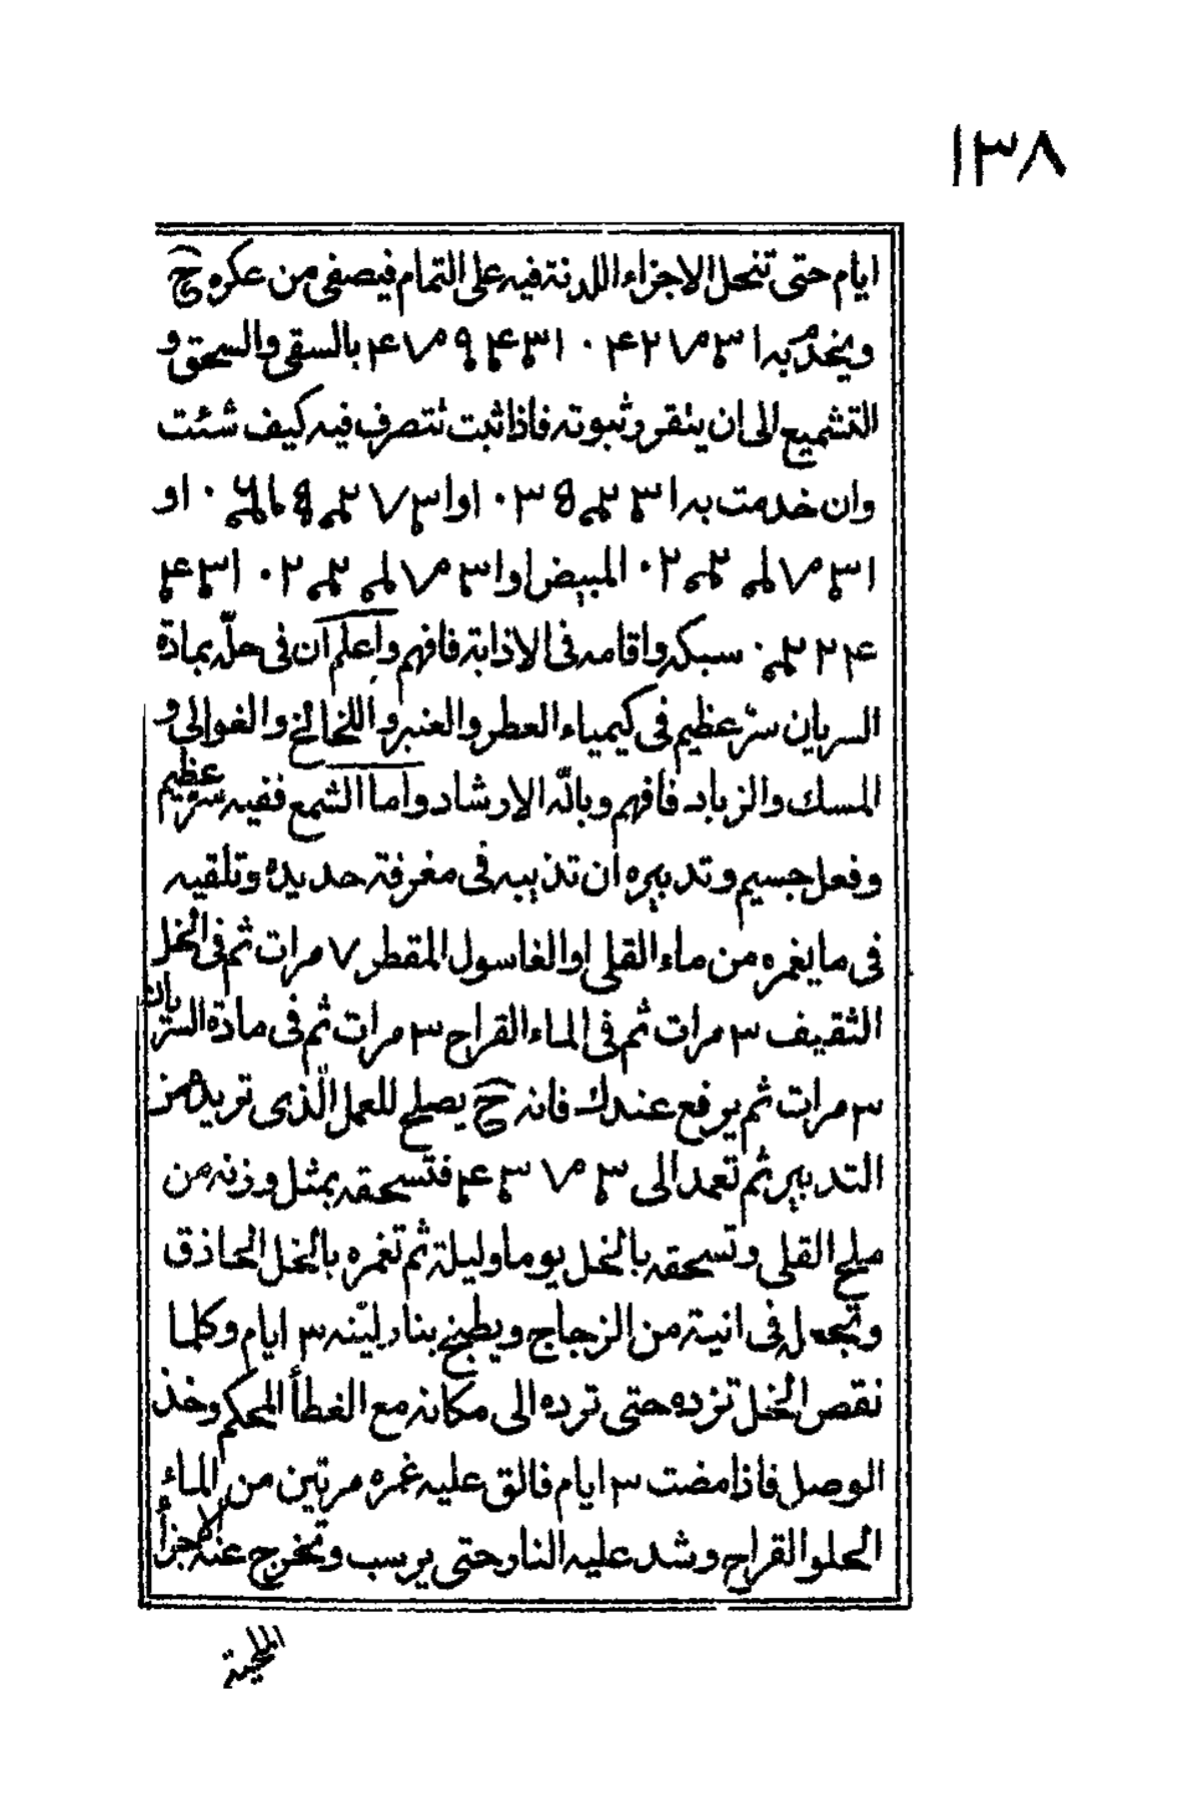 ١٣٨
ايام حتى تنحل الاجزاء اللدنة فيه على التمام فيصفى من عكره وح
ويخدم به ا٣ ٧ ٤٢٠ ا٣ ٤ ٩ ٧ ٤ بالسقى والسحق و
التشميع الى ان يتقرر ثبوته فاذا ثبت تتصرف فيه كيف شئت
وان خدمت به ا٣ ٣ ٢ ٣٠ او ا٣ ٧ ٢ ٠ او
ا٣ ٧ ٢ ٢٠ المبيض او ا٣ ٧ ٢ ٢٠ ا٣ ٤
٤٢٢ ٠ سبكه واقامه فى الاذابة فافهم واعلم ان فى حله بمادة
السريان سر عظيم فى كيمياء العطر والعنبر واللخالخ والغوالى و
المسك والزباد فافهم وبالله الارشاد واما الشمع ففيه سر عظيم
وفعل جسيم وتدبيره ان تذيبه فى مغرفة حديده وتلقيه
فى ما يغمره من ماء القلى او الغاسول المقطر ٧ مرات ثم فى الخل
الثقيف ٣ مرات ثم فى الماء القراح ٣ مرات ثم فى مادة السريان
٣ مرات ثم يرفع عندك فانه ح يصلح للعمل الّذى تريده من
التدبير ثم تعمد الى ٣ ٧ ٣ ٤ فتسحقه بمثل وزنه من
ملح القلى وتسحقه بالخل يوما وليلة ثم تغمره بالخل الحاذق
وتجعله فى انية من الزجاج ويطبخ بنار لينه ٣ ايام وكلما
نقص الخل تزده حتى ترده الى مكانه مع الغطأ المحكم وخذ
الوصل فاذا مضت ٣ ايام فالق عليه غمره مرتين من الماء
الحلو القراح وشد عليه النار حتى يرسب وتخرج عنه الاجزأ
الملحية